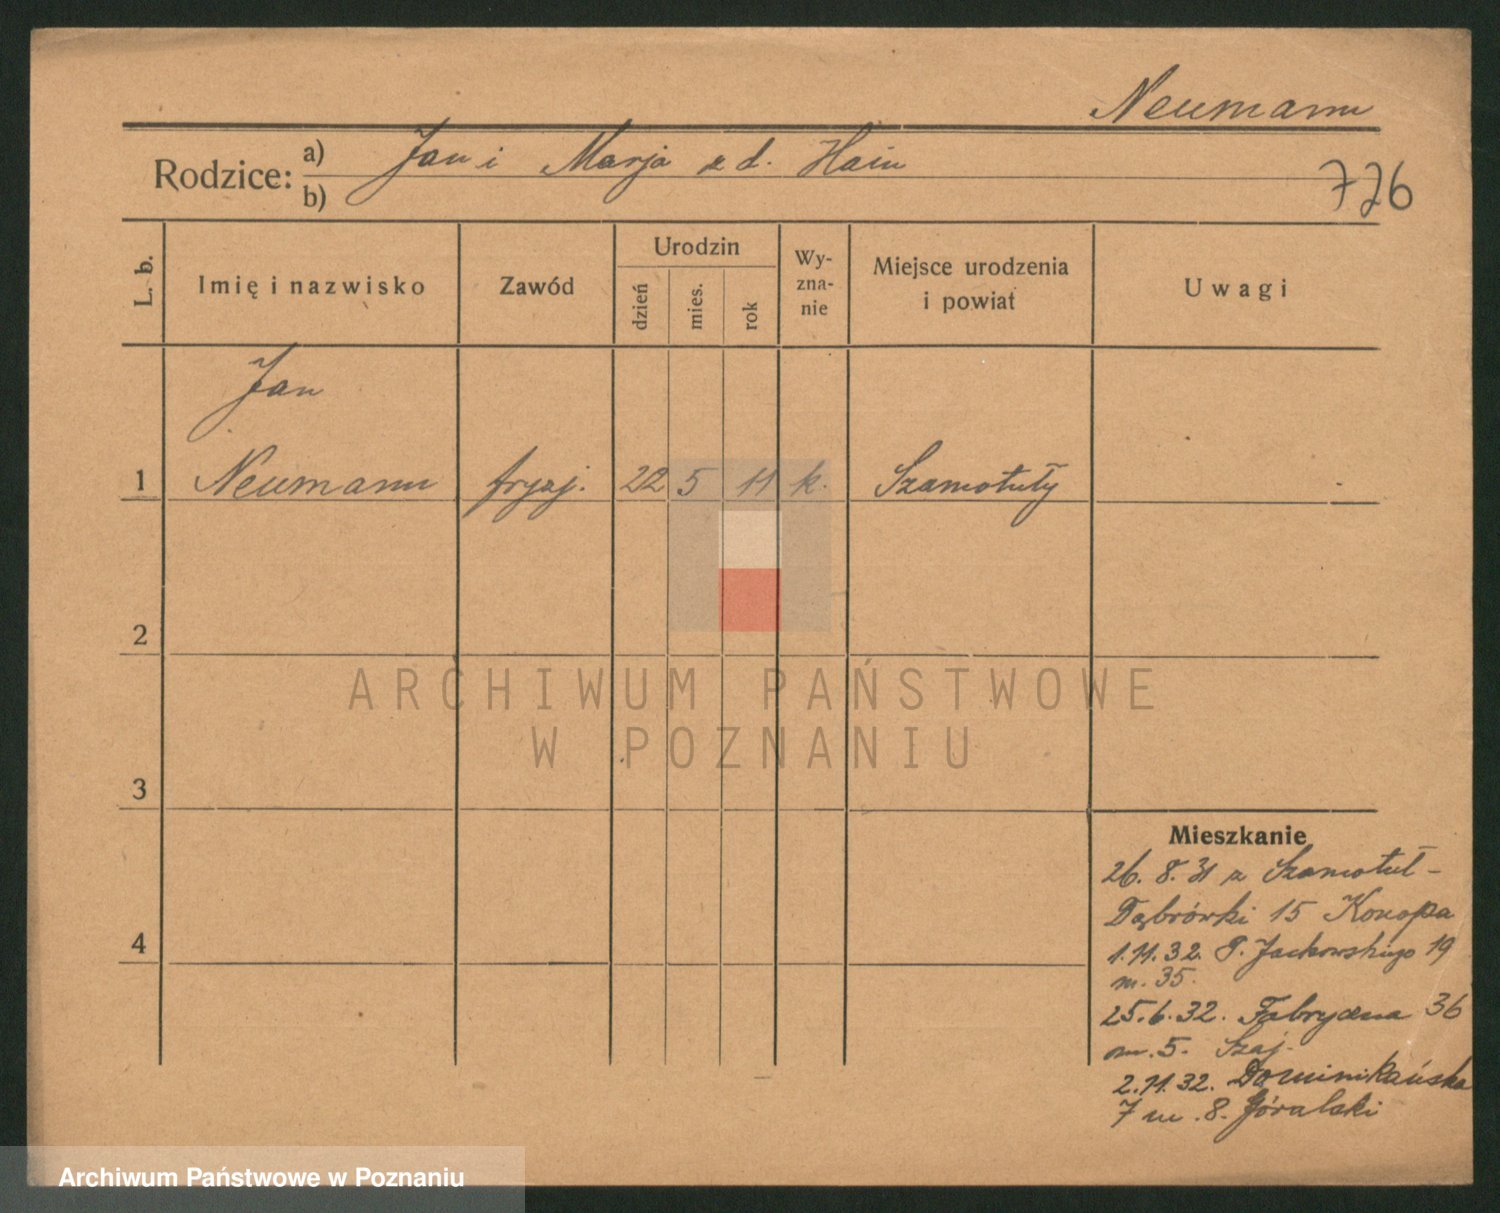 Neumann
Rodzice: a) Jan i Marja z d. Hain
b)
776
L. b. Imię i nazwisko Zawód Urodzin dzień mies. rok Wy-zna-nie Miejsce urodzenia i powiat Uwagi
Jan
1 Neumann fryzj. 22 5 11 k. Szamotuły
2
3
4
Mieszkanie
26. 8. 31 z Szamotuł -
Dąbrówki 15 Konopa
1.11.32. P. Jackowskiego 19
m. 35.
25.6.32. Fabryczna 36
m. 5. Szaj.
2.11.32. Dominikańska
7 m. 8. Góralski
ARCHIWUM PAŃSTWOWE
W POZNANIU
Archiwum Państwowe w Poznaniu